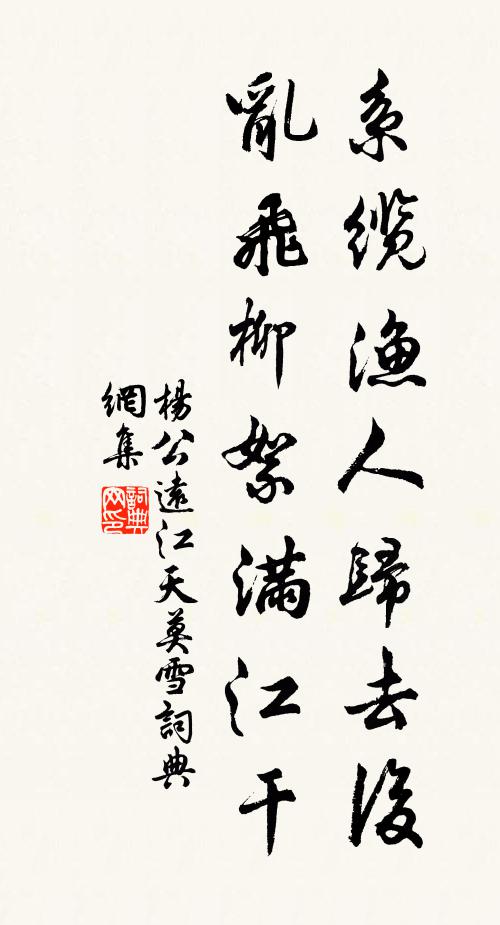 系纜漁人歸去後
亂飛柳絮滿江干
楊公遠江天莫雪詞典
網集
詞典
网印